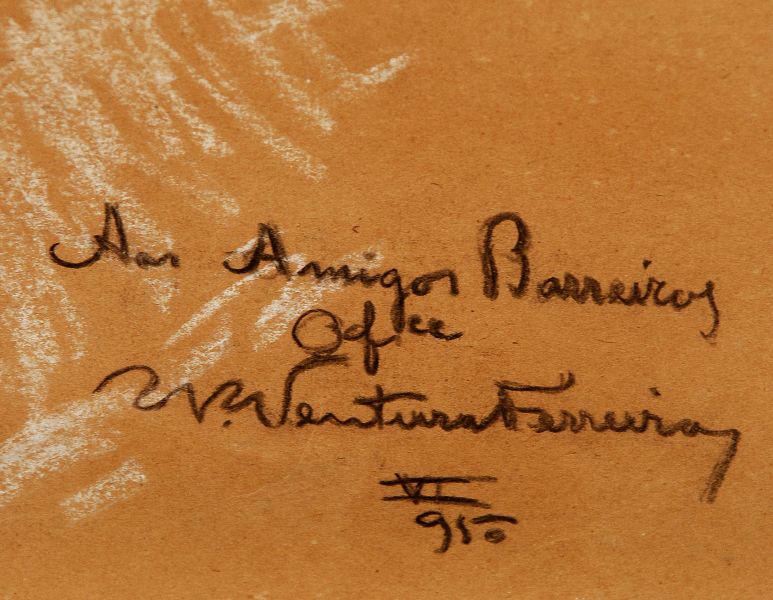 Aos Amigos Barreiros
Of.ce
W. Ventura Ferreira
VI
950